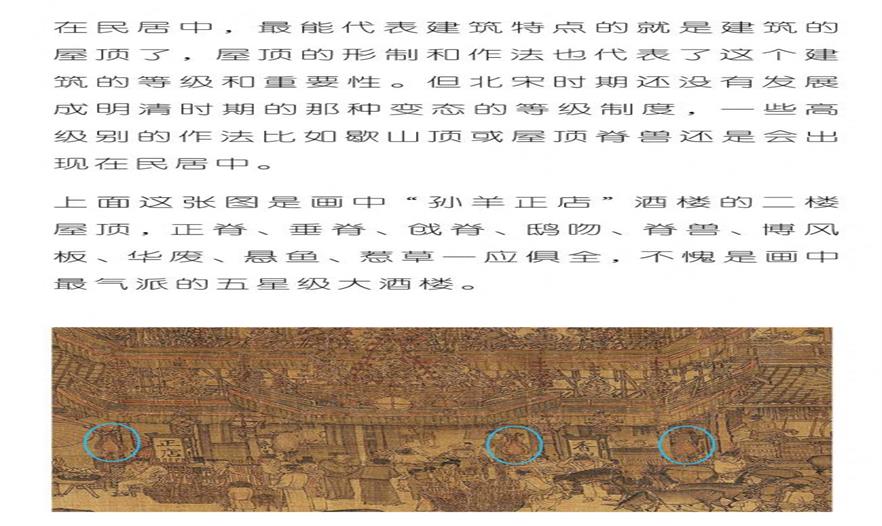 在民居中，最能代表建筑特点的就是建筑的
屋顶了，屋顶的形制和作法也代表了这个建
筑的等级和重要性。但北宋时期还没有发展
成明清时期的那种变态的等级制度，一些高
级别的作法比如歇山顶或屋顶脊兽还是会出
现在民居中。
上面这张图是画中“孙羊正店”酒楼的二楼
屋顶，正脊、垂脊、戗脊、鸱吻、脊兽、博风
板、华废、悬鱼、惹草一应俱全，不愧是画中
最气派的五星级大酒楼。
正店
香